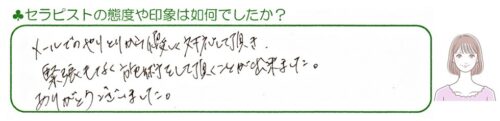 ♣セラピストの態度や印象は如何でしたか？
メールでのやりとりから優しく対応して頂き、
緊張もなく お話をして頂くことが出来ました。
ありがとうございました。